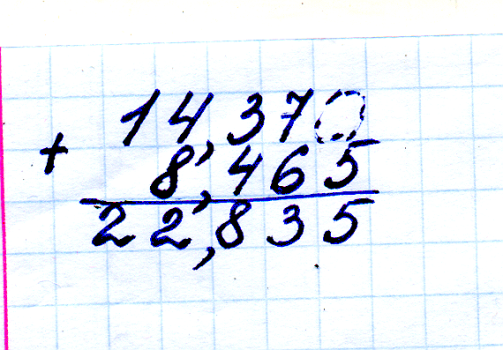 14,370
+ 8,465
22,835